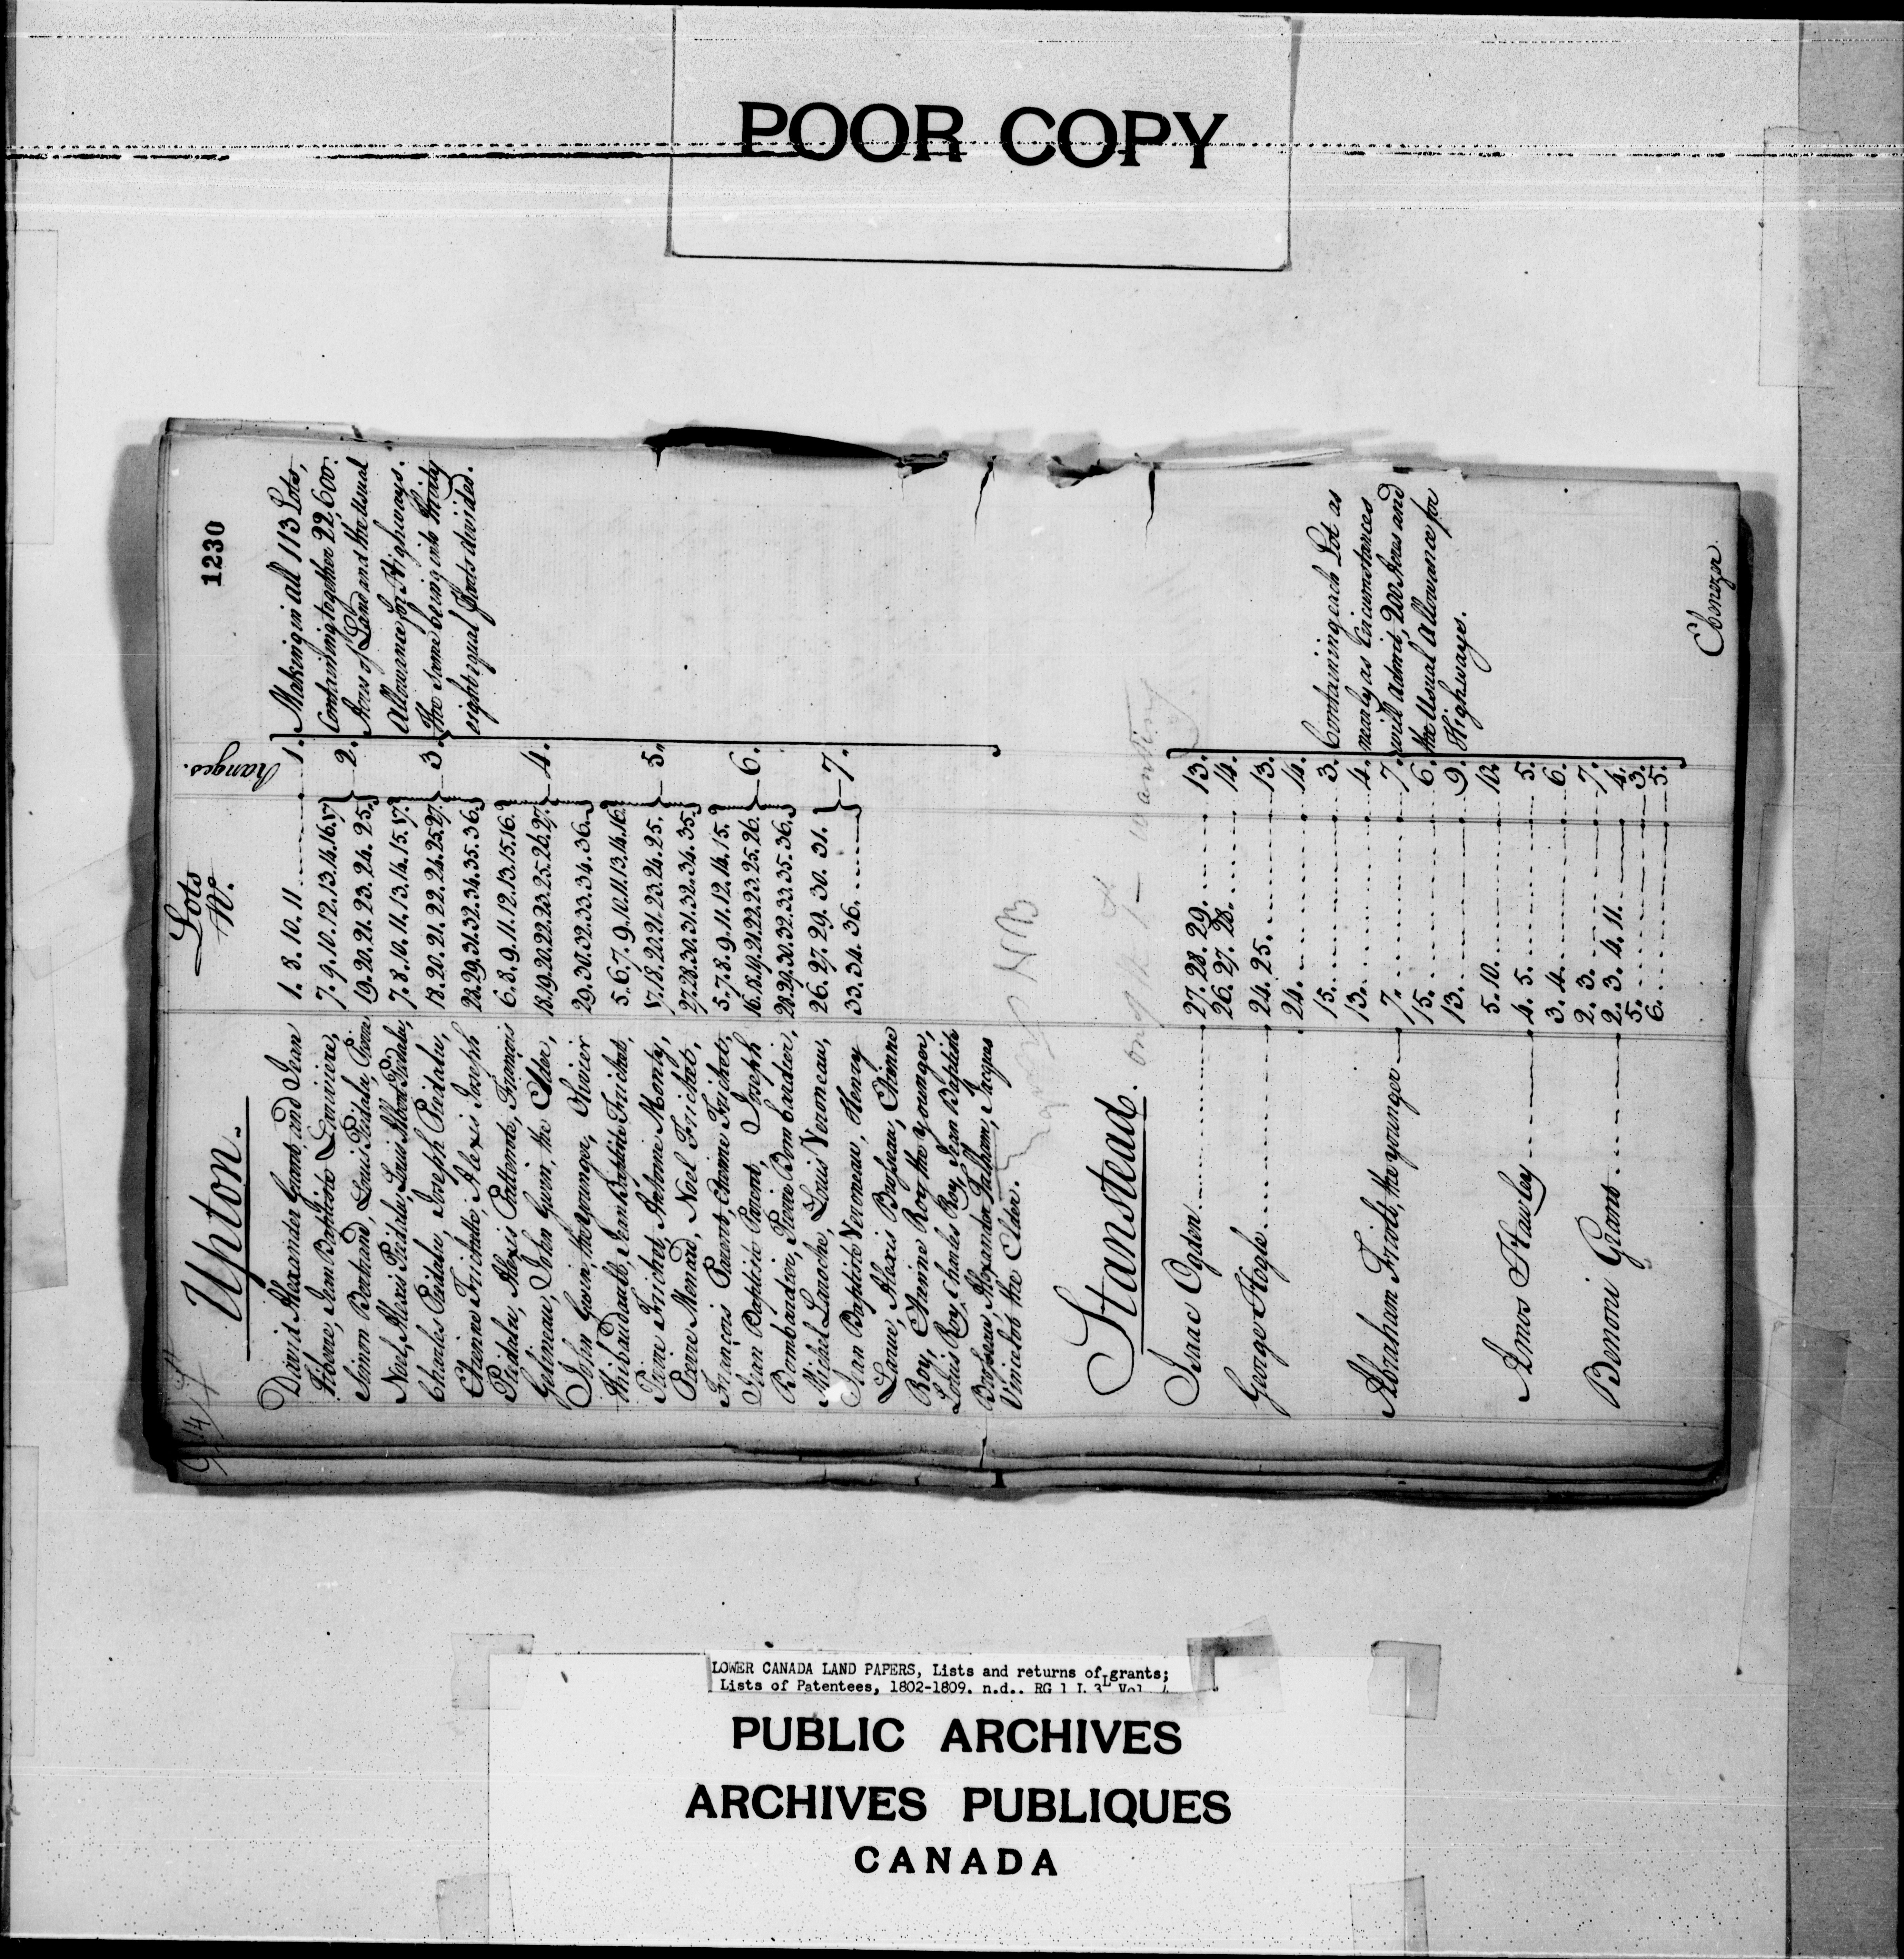 POOR COPY
1230
Lots
No.
Ranges.
Upton.
David Alexander Grant, and Jean
Simon Bertrand, Louis
Charles Joseph
Alexis Joseph
Alexis François
John Gwin, the Elder,
John Gwin, the younger, Olivier
Thibaudault, Jean Baptiste Frichet,
Pierre Frichet, Antoine Monty,
Pierre Menard, Noel Frichet,
François Parent, Etienne Frichet,
Jean Baptiste Parent, Joseph
Bombardier, Pierre Bombardier,
Michel Louis Veroneau,
Jean Baptiste Veroneau, Henry
Alexis Etienne
Roy, Etienne Roy the younger,
Louis Roy, Charles Roy, Jean Baptiste
Alexander Jacques
the Elder.
1. 8. 10. 11 1.
7. 9. 10. 12. 13. 14. 16. 17
19. 20. 21. 23. 24. 25. 2.
7. 8. 10. 11. 13. 14. 15. 17.
18. 20. 21. 22. 24. 25. 27. 3.
28. 29. 31. 32. 34. 35. 36.
6. 8. 9. 11. 12. 13. 15. 16.
18. 19. 20. 22. 23. 25. 26. 27. 4.
29. 30. 32. 33. 34. 36.
5. 6. 7. 9. 10. 11. 13. 14. 16.
17. 18. 20. 21. 23. 24. 25. 5.
27. 28. 30. 31. 32. 34. 35.
5. 7. 8. 9. 11. 12. 14. 15.
16. 18. 19. 21. 22. 23. 25. 26. 6.
28. 29. 30. 32. 33. 35. 36.
26. 27. 29. 30. 31. 7.
33. 34. 36.
Making in all 113 Lots,
Containing together 22,600.
Acres of Land and the Usual
Allowance for Highways.
The same being into thirty
eight equal parts divided.
NB
wanting
Stanstead.
Isaac Ogden 27. 28. 29. 13.
26. 27. 28. 14.
George Hogle 24. 25. 13.
24. 14.
15. 3.
13. 4.
Abraham the younger 7. 7.
15. 6.
13. 9.
5. 10. 10.
Amos Hawley 4. 5. 5.
3. 4. 6.
2. 3. 7.
Benoni Grant 2. 3. 4. 11. 4.
5. 3.
6. 5.
Containing each Lot as
nearly as Circumstances
will admit, 200 Acres and
the Usual Allowance for
Highways.
Ebenezer
LOWER CANADA LAND PAPERS, Lists and returns of grants;
Lists of Patentees, 1802-1809. n.d.. RG 1 L 3L Vol.
PUBLIC ARCHIVES
ARCHIVES PUBLIQUES
CANADA